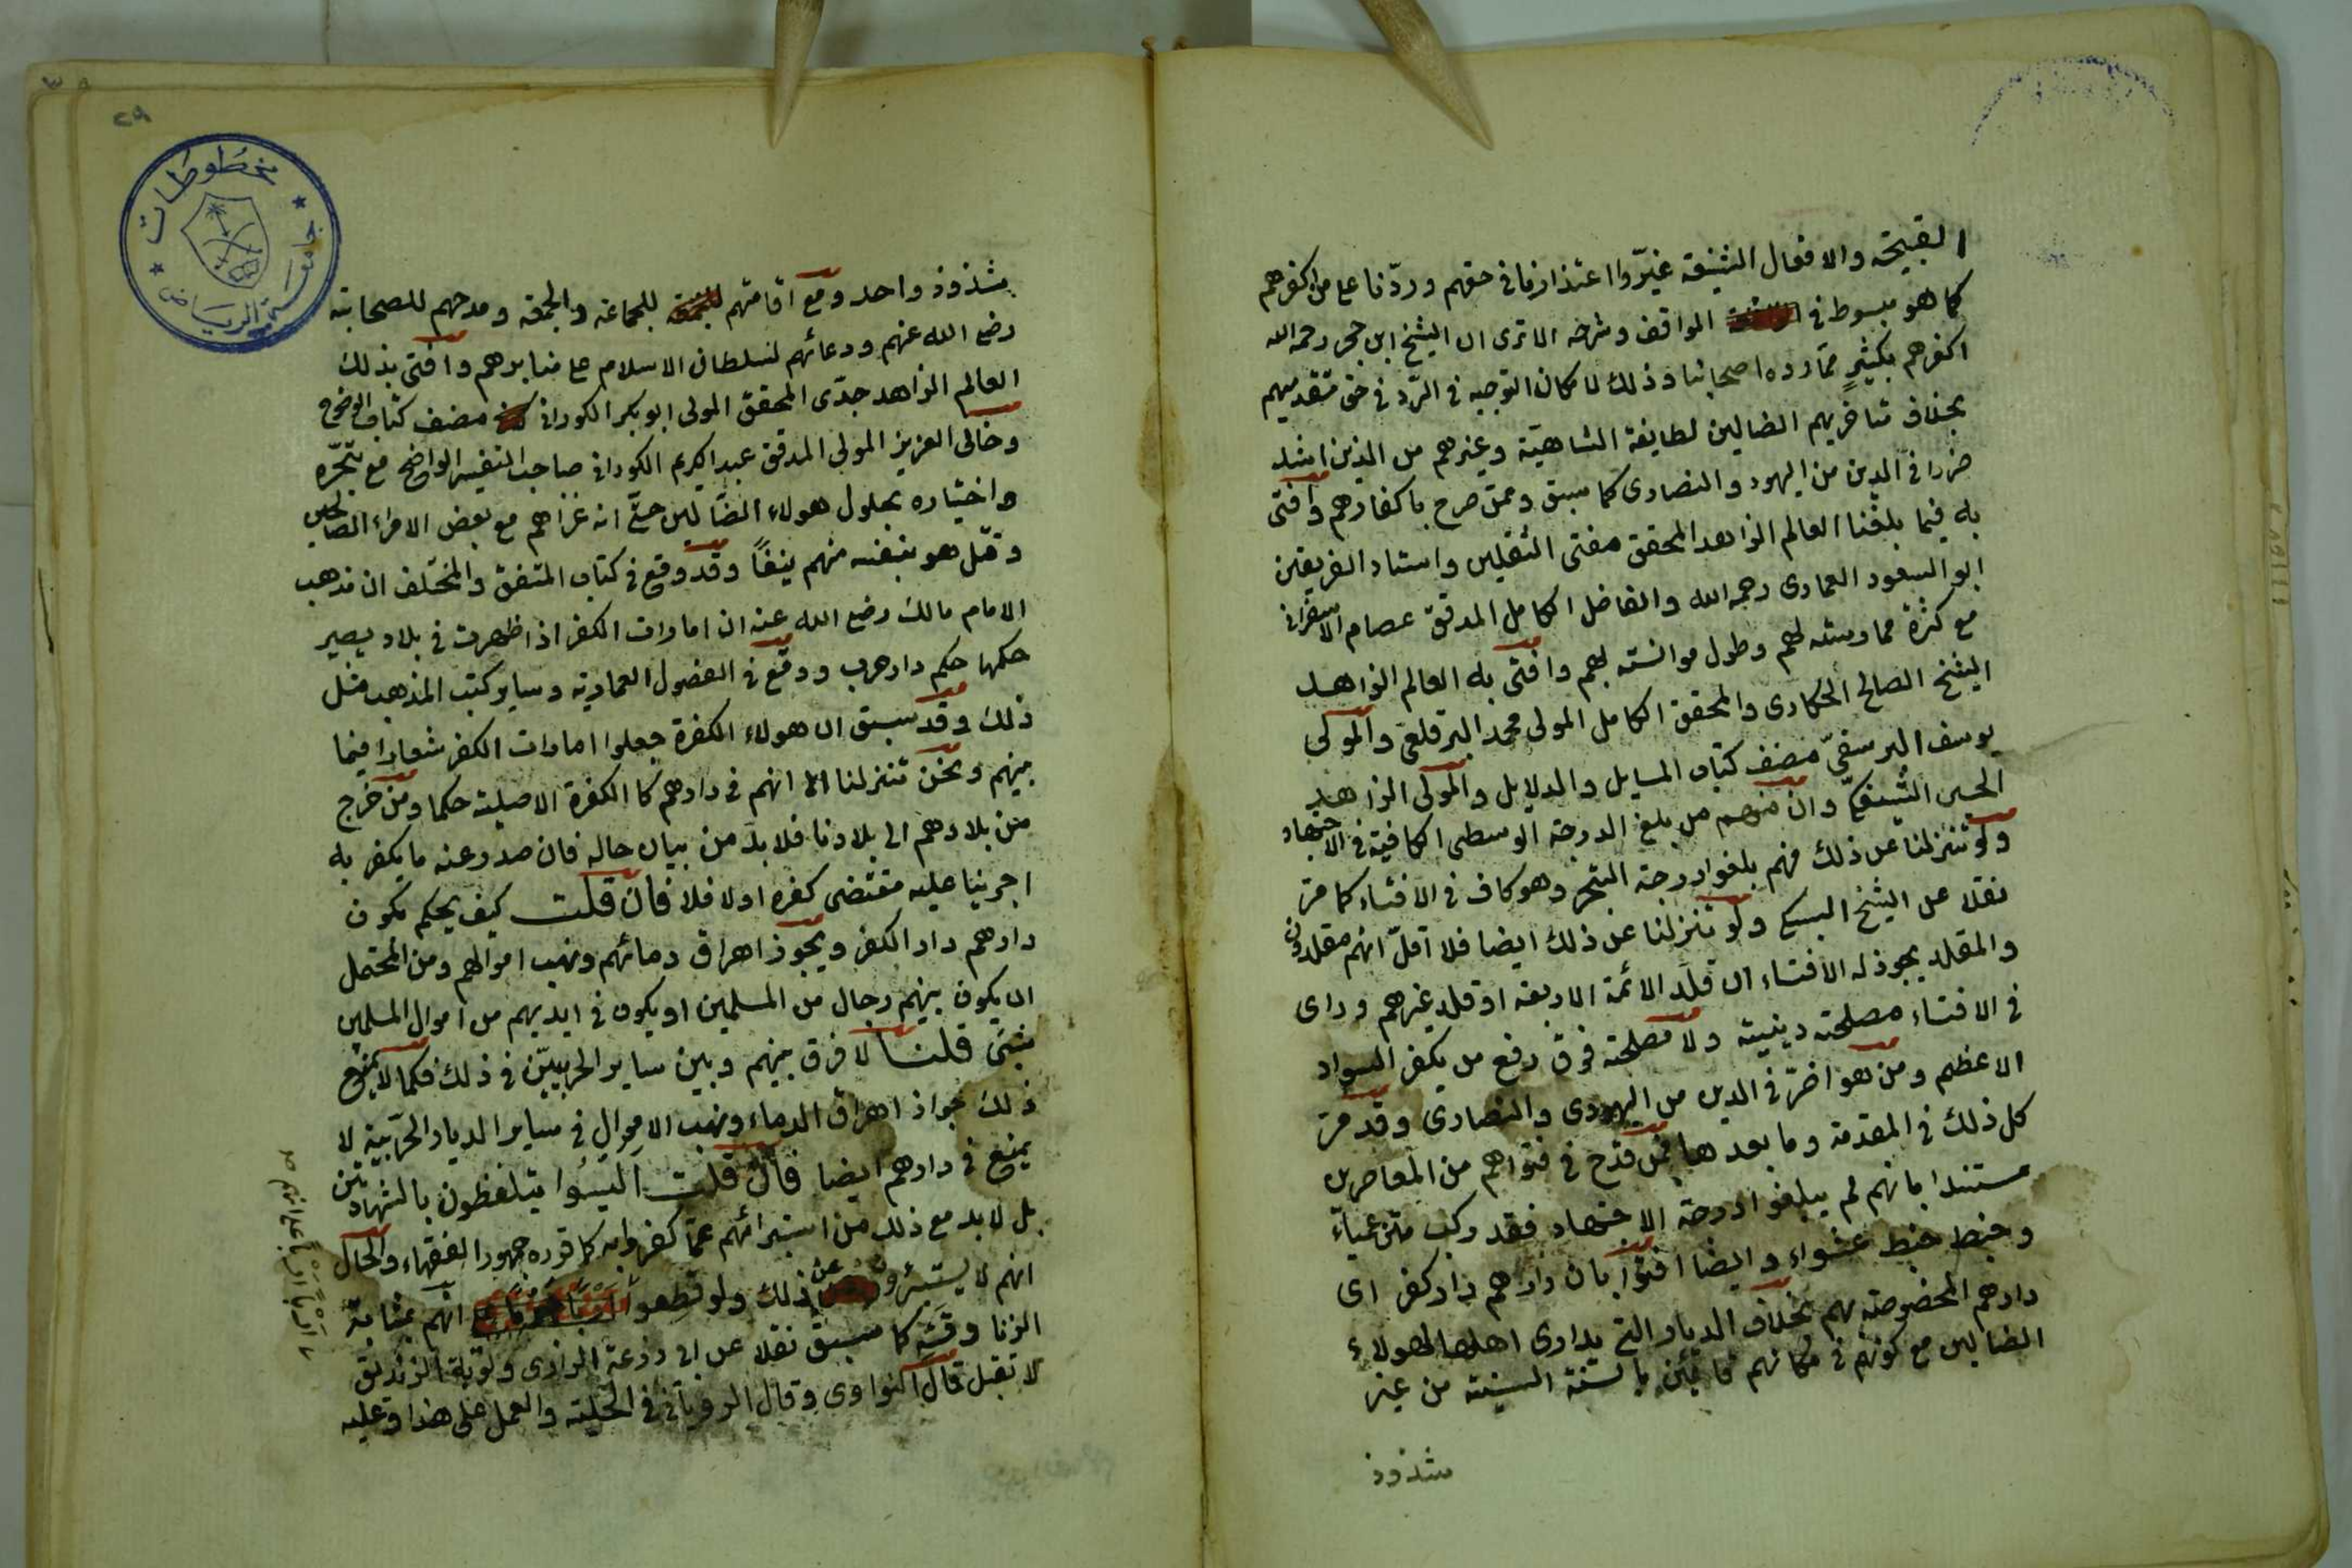 القبيحة والافعال الشنيعة غيّروا اعتذارنا في حقهم وردّنا على من اكفرهم
كما هو مبسوط في المواقف وشرحه الا ترى ان الشيخ ابن حجر رحمه الله
اكفرهم بكثيرٍ ممّا رده اصحابنا وذلك لامكان التوجيه في الرّد في حق متقدميهم
بخلاف متاخريهم الضالين لطايفة الشاهيّة وغيرهم من الذين اشد
ضررا في الدين من اليهود والنصارى كما سبق وممّن صرح باكفارهم وافتى
به فيما بلغنا العالم الزاهد المحقق مفتى الثقلين واستاد الفريقين
ابو السعود العمادى رحمه الله والفاضل الكامل المدقق عصام الاسفرانى
مع كثرة ممارسته لهم وطول موانسته بهم وافتى به العالم الزاهد
الشيخ الصالح الحكارى والمحقق الكامل المولى محمد البرقلعى والمولى
يوسف مصنف كتاب المسايل والدلايل والمولى الزاهد
الحسن وان منهم من بلغ الدرجة الوسطى الكافية في الاجتهاد
ولو تنزلنا عن ذلك فهم بلغوا درجة التبحر وهو كاف في الافتاء كما مرّ
نقلا عن الشيخ السبكى ولو تنزلنا عن ذلك ايضا فلا اقلّ انهم مقلدون
والمقلد يجوز له الافتاء ان قلّد الائمة الاربعة او قلد غيرهم وراى
في الافتاء مصلحة دينية ولا مصلحة فوق دفع من يكفر السواد
الاعظم ومن هو اضرّ في الدين من اليهودى والنصارى وقد مرّ
كل ذلك في المقدمة وما بعدها فمن قدح في فتواهم من المعاصرين
مستندا بانهم لم يبلغوا درجة الاجتهاد فقد ركب متن عمياء
وخبط خبط عشواء وايضا افتوا بان دارهم دار كفر اى
دارهم المخصوصة بهم بخلاف الديار التي يدارى اهلها لهؤلاء
الضالين مع كونهم في مكانهم قائمين بالسنة السنية من غير
شذوذ
شذوذ واحد ومع اقامتهم للجماعة والجمعة ومدحهم للصحابة
رضى الله عنهم ودعائهم لسلطان الاسلام على منابرهم وافتى بذلك
العالم الزاهد جدّى المحقق المولى ابو بكر الكورانى مصنف كتاب الوضوح
وخالى العزيز المولى المدقق عبد الكريم الكورانى صاحب التفسير الواضح مع تبحّره
واختياره بحلول هولاء الضّالين حتّى انه غزاهم مع بعض الامراء الصالحين
وقتل هو بنفسه منهم نيفًا وقد وقع في كتاب المتفق والمختلف ان مذهب
الامام مالك رضى الله عنه ان امارات الكفر اذا ظهرت في بلاد يصير
حكمها حكم دار حرب ووقع في الفصول العمادية وساير كتب المذهب مثل
ذلك وقد سبق ان هولاء الكفرة جعلوا امارات الكفر شعارا فيما
بينهم ونحن تنزلنا الى انهم في دارهم كالكفرة الاصلية حكما ومن خرج
من بلادهم الى بلادنا فلا بدّ من بيان حاله فان صدر عنه ما يكفر به
اجرينا عليه مقتضى كفره اولا فلا فان قلت كيف يحكم بكون
دارهم دار الكفر ويجوز اهراق دمائهم ونهب اموالهم ومن المحتمل
ان يكون بينهم رجال من المسلمين او يكون في ايديهم من اموال المسلمين
شئ قلنا لا فرق بينهم وبين ساير الحربيّين في ذلك فكما لا يمنع
ذلك جواز اهراق الدماء ونهب الاموال في ساير الديار الحربية لا
يمنع في دارهم ايضا فان قلت اليسوا يتلفظون بالشهادتين
بل لا بد مع ذلك من استبرائهم عمّا كفروا به كما قرره جمهور الفقهاء والحال
انهم لا يستبرؤن عن ذلك ولو قطعوا انهم بمثابة
الزنادقة كما سبق نقلا عن ابى زرعة الرازى وتوبة الزنديق
لا تقبل قال النواوى وقال الرويانى في الحلية والعمل على هذا وعليه
مخطوطات
جامعة الرياض
٢٩